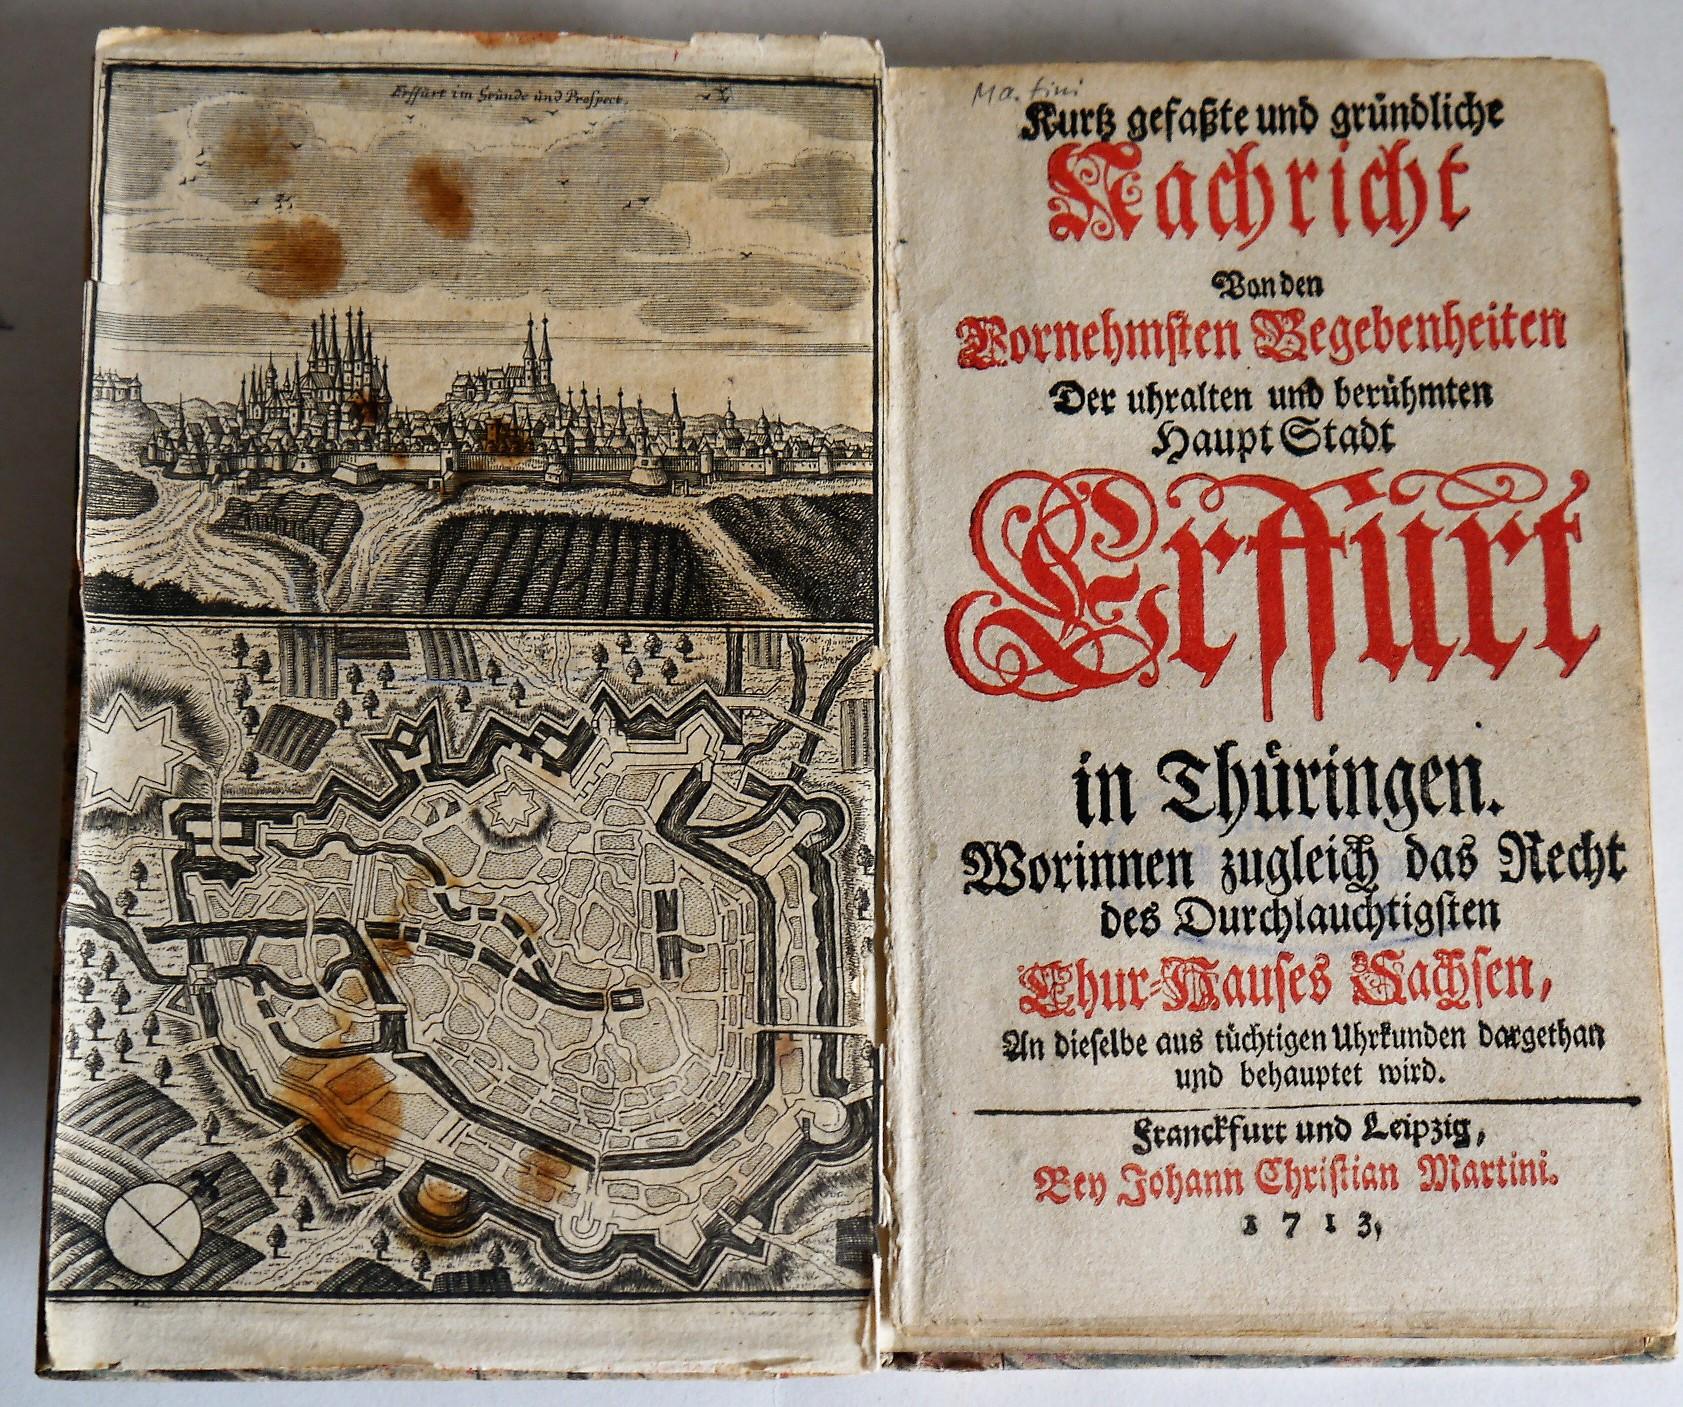 Erffürt im Gründe und Prospect.
Kurtz gefaßte und gründliche
Nachricht
Von den
Vornehmsten Begebenheiten
Der uhralten und berühmten
Haupt Stadt
Erffurt
in Thüringen.
Worinnen zugleich das Recht
des Durchlauchtigsten
Chur-Hauses Sachsen,
An dieselbe aus tüchtigen Uhrkunden dargethan
und behauptet wird.
Franckfurt und Leipzig,
Bey Johann Christian Martini.
1713,